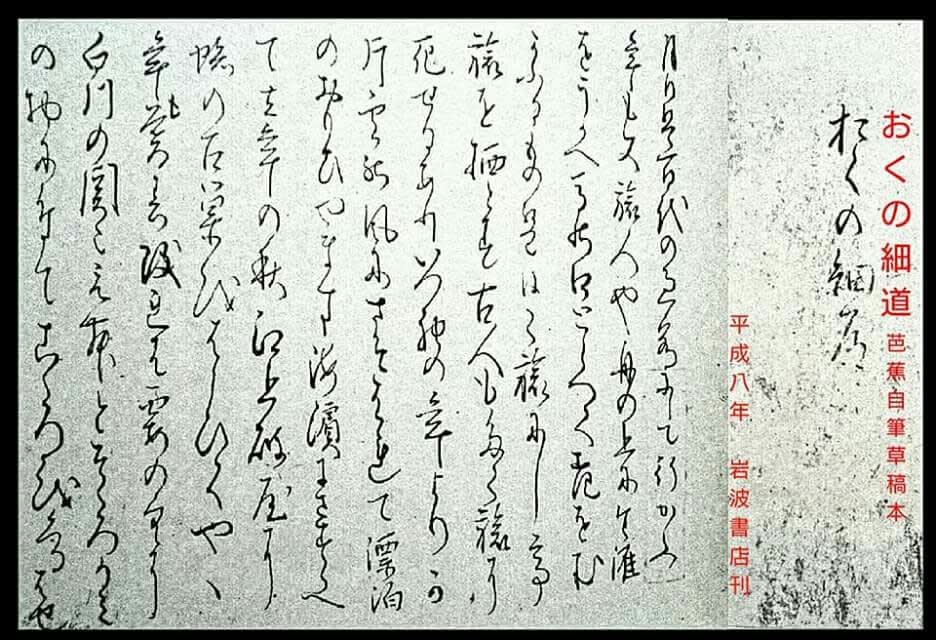 おくの細道 芭蕉自筆草稿本
おくの細道
平成八年 岩波書店刊
月日は百代の過客にして行かふ
年も又旅人や舟の上に生涯
をうかへ馬の口とらへて老をむ
かふるものは日々旅にして
旅を栖とす古人も多く旅に
死せるありいつれの年よりか
片雲の風にさそはれて漂泊
のおもひやます海濱にさすらへ
て去年の秋江上破屋に
蜘の古巣をはらひてやゝ
年も暮春改れは霞の空に
白川の関こえむとそゝろかみ
の物に付てこゝろをくるはせ